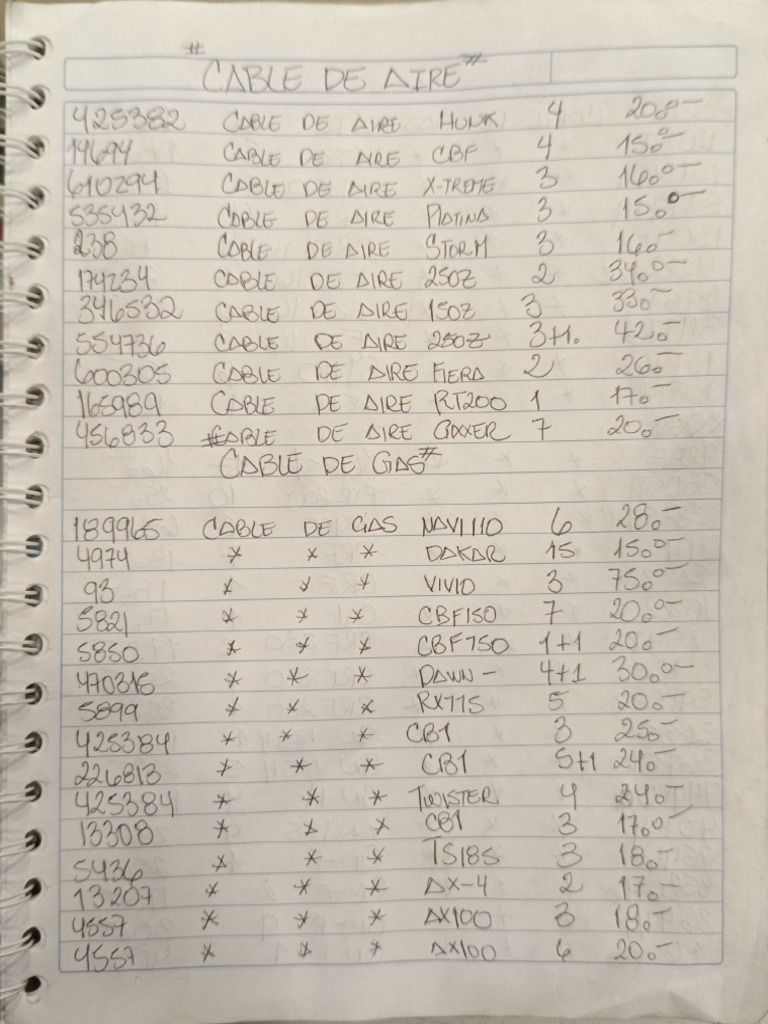 # CABLE DE AIRE #
425382 CABLE DE AIRE HUNK 4 20.0-
14694 CABLE DE AIRE CBF 4 15.0-
610294 CABLE DE AIRE X-TREME 3 16.0-
535432 CABLE DE AIRE PLATINA 3 15.0
238 CABLE DE AIRE STORM 3 16.-
174234 CABLE DE AIRE 250Z 2 34.0-
346532 CABLE DE AIRE 150Z 3 33.-
554736 CABLE DE AIRE 250Z 3+1. 42.-
600305 CABLE DE AIRE FIERA 2 26.-
165989 CABLE DE AIRE RT200 1 17.-
456833 #CABLE DE AIRE GIXXER 7 20.-
CABLE DE GAS#
189965 CABLE DE GAS NAVI110 6 28.-
4974 * * * DAKAR 15 15.0-
93 * * * VIVIO 3 75.0-
5821 * * * CBF150 7 20.0-
5850 * * * CBF750 1+1 20.-
470316 * * * DAWN- 4+1 30.0-
5899 * * * RX115 5 20.-
425384 * * * CB1 3 25.-
226813 * * * CB1 5+1 24.-
425384 * * * TWISTER 4 24.-
13308 * * * CB1 3 17.0-
5436 * * * TS185 3 18.-
13207 * * * AX-4 2 17.-
4557 * * * AX100 3 18.-
4557 * * * AX100 6 20.-